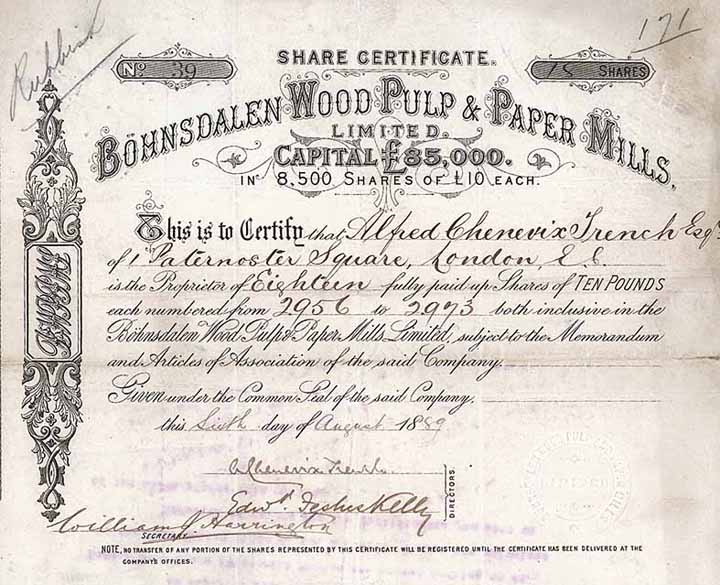 Rubbish
171
SHARE CERTIFICATE.
No 39
18 SHARES
BÖHNSDALEN WOOD PULP & PAPER MILLS,
LIMITED.
CAPITAL £85,000.
IN 8,500 SHARES OF £10 EACH.
This is to Certify that Alfred Chenevix Trench Esqr
of 1 Paternoster Square, London, E.C.
is the Proprietor of Eighteen fully paid up Shares of TEN POUNDS
each numbered from 2956 to 2973 both inclusive in the
Böhnsdalen Wood Pulp & Paper Mills Limited, subject to the Memorandum
and Articles of Association of the said Company.
Given under the Common Seal of the said Company,
this Sixth day of August 1889
A Chenevix Trench
Edwd Festus Kelly
DIRECTORS.
William J. Harrington
SECRETARY.
NOTE, NO TRANSFER OF ANY PORTION OF THE SHARES REPRESENTED BY THIS CERTIFICATE WILL BE REGISTERED UNTIL THE CERTIFICATE HAS BEEN DELIVERED AT THE
COMPANY'S OFFICES.